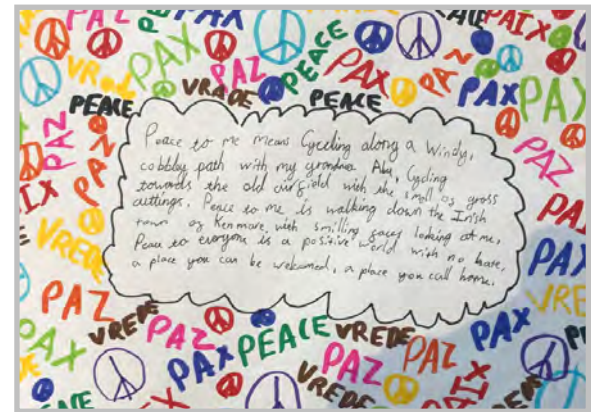 PAZ PAX PEACE PAIX
VRede PAX VREDE PAZ PEACE PAX PAZ PAX PAX
PEACE PEACE
PAZ PAZ
Peace to me means Cycling along a Windy,
cobbley path with my grandma, Cycling
towards the old airfield with the smell of grass
cuttings. Peace to me is walking down the Irish
town of Kenmare with smilling faces looking at me.
Peace to everyone is a positive world with no hate,
a place you can be welcomed, a place you call home.
VREDE PAX
PAZ VREDE PAZ PAX PEACE VREDE PAZ PAX
PAX PAZ VREDE PAIX